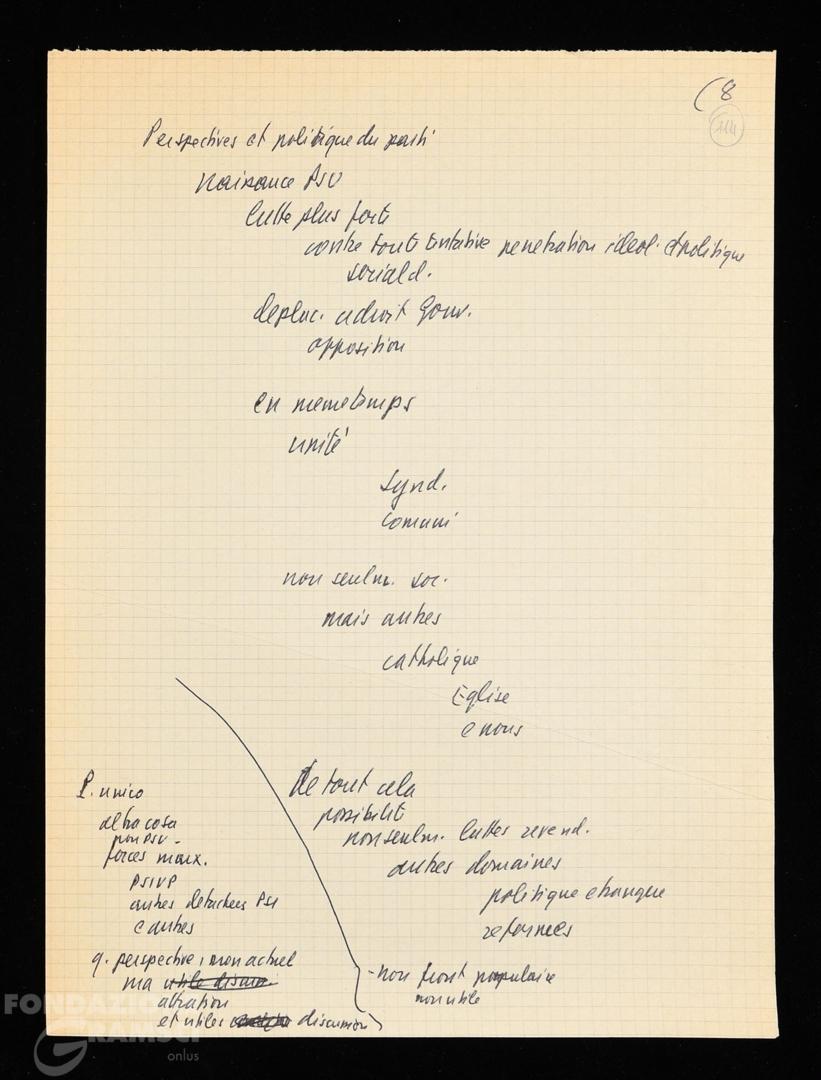 (8
114
Perspectives et politique du parti
naissance PSU
lutte plus forte
contre toute tentative penetration ideol. et politique
sociald.
deplac. a droit Gouv.
opposition
en meme temps
unité
synd.
comuni
non seulm. soc.
mais autres
catholique
Eglise
e nous
De tout cela
possibilité
non seulm. luttes revend.
autres domaines
politique etrangere
reformes
- non front populaire
non utile
P. unico
altra cosa
non PSU -
forces marx.
PSIUP
autres detachees PSI
e autres
q. perspective, non actuel
ma
et utiles discussion
FONDAZIONE
GRAMSCI
onlus